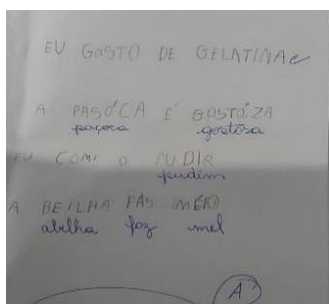 EU GOSTO DE GELATINA e
A PASÓCA É GOSTÓIZA
paçoca gostosa
EU COMI O PUDIR
pudim
A BEILHA FÁS MÉIO
abelha faz mel
A)